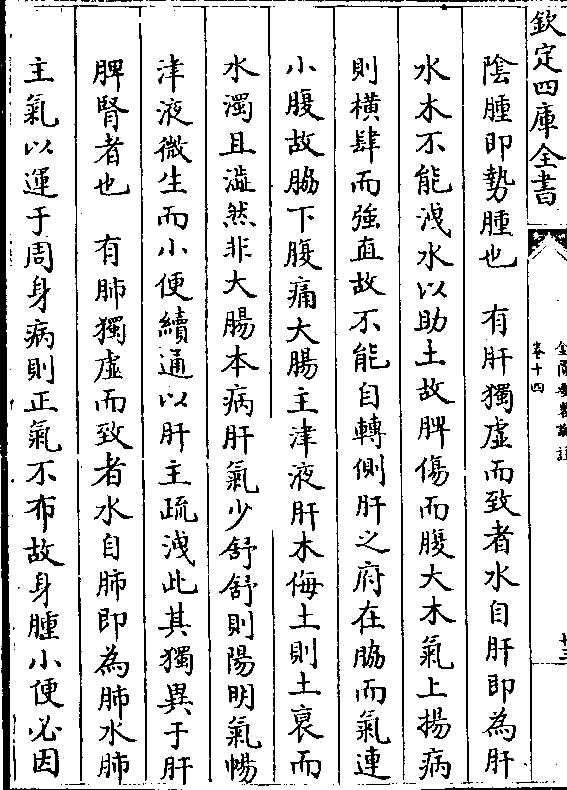 欽定四庫全書
金匱要畧論註
卷十四
十三
陰腫即勢腫也　有肝獨虛而致者水自肝即為肝
水木不能洩水以助土故脾傷而腹大木氣上揚病
則橫肆而強直故不能自轉側肝之府在脇而氣連
小腹故脇下腹痛大腸主津液肝木侮土則土裒而
水濁且溢然非大腸本病肝氣少舒舒則陽明氣暢
津液微生而小便續通以肝主疏洩此其獨異于肝
脾腎者也　有肺獨虛而致者水自肺即為肺水肺
主氣以運于周身病則正氣不布故身腫小便必因